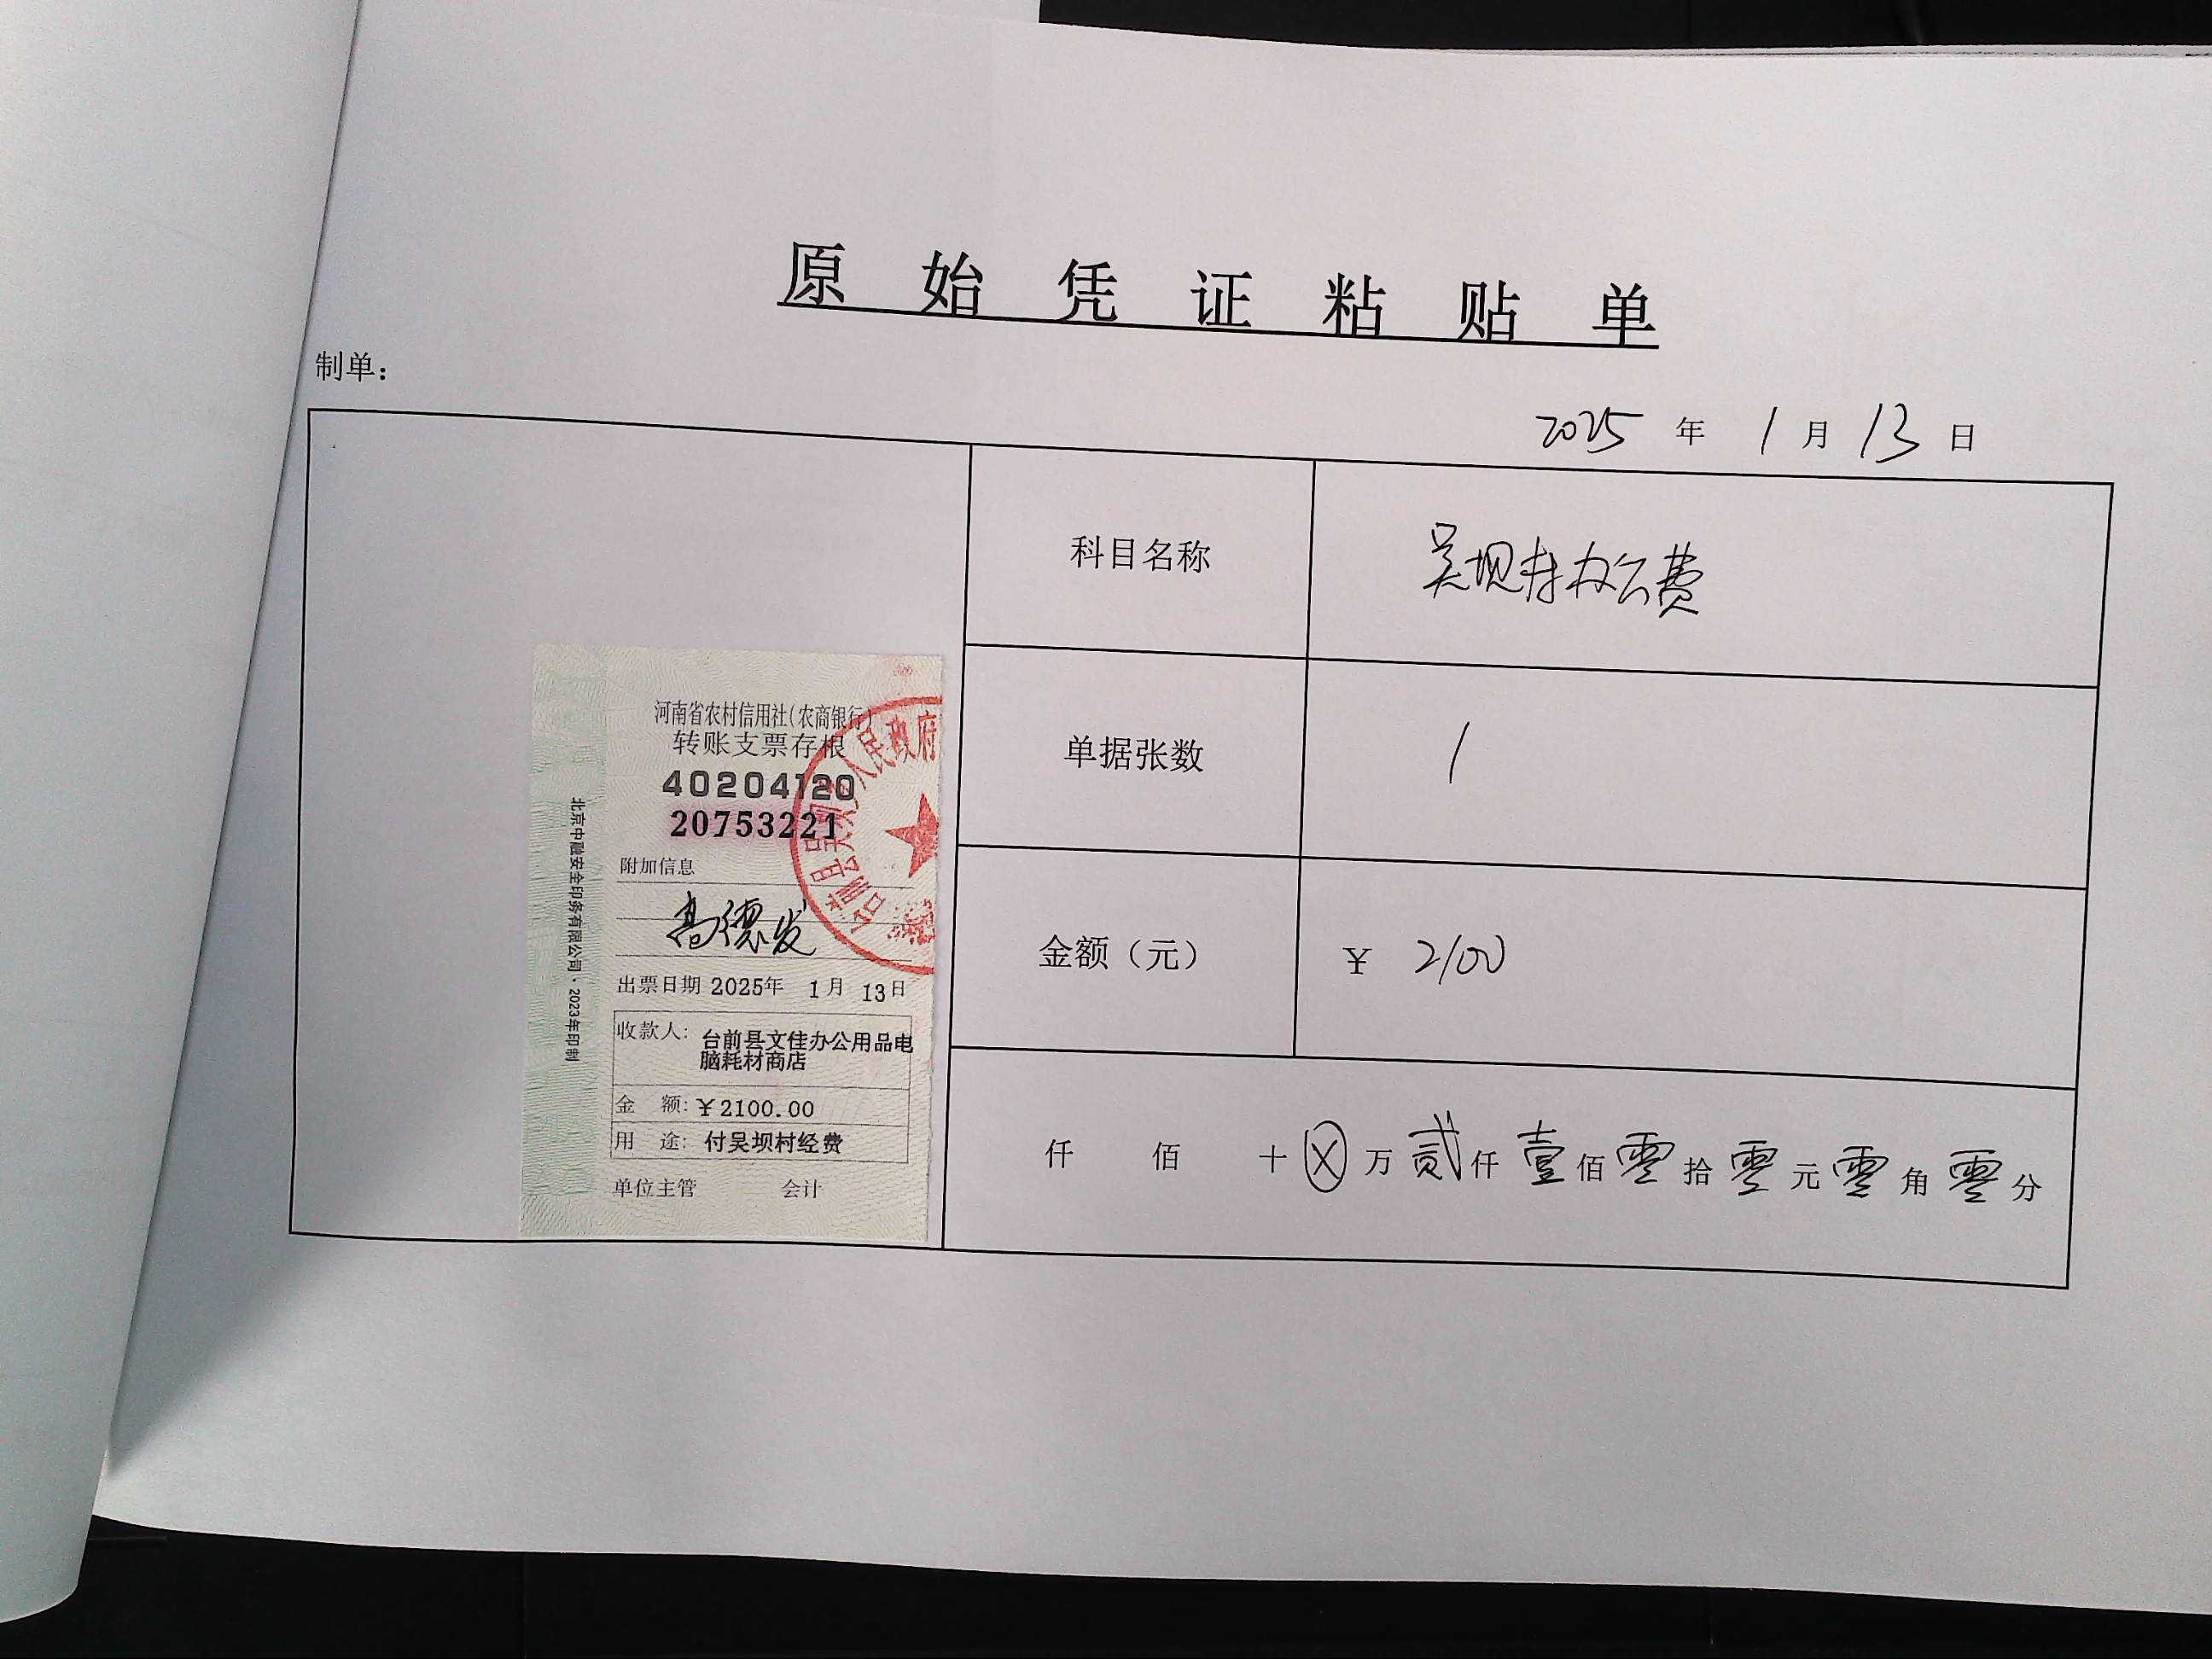 原始凭证粘贴单
制单：
2025年1月13日
科目名称 吴坝村办公费
单据张数 1
金额（元） ￥2100
仟 佰 十ⓧ万贰仟壹佰零拾零元零角零分
河南省农村信用社（农商银行）
转账支票存根
40204120
20753221
附加信息
高德发
出票日期 2025年 1月 13日
收款人：台前县文佳办公用品电
脑耗材商店
金 额：￥2100.00
用 途：付吴坝村经费
单位主管 会计
北京中融安全印务有限公司·2023年印制
台前县吴坝乡人民政府